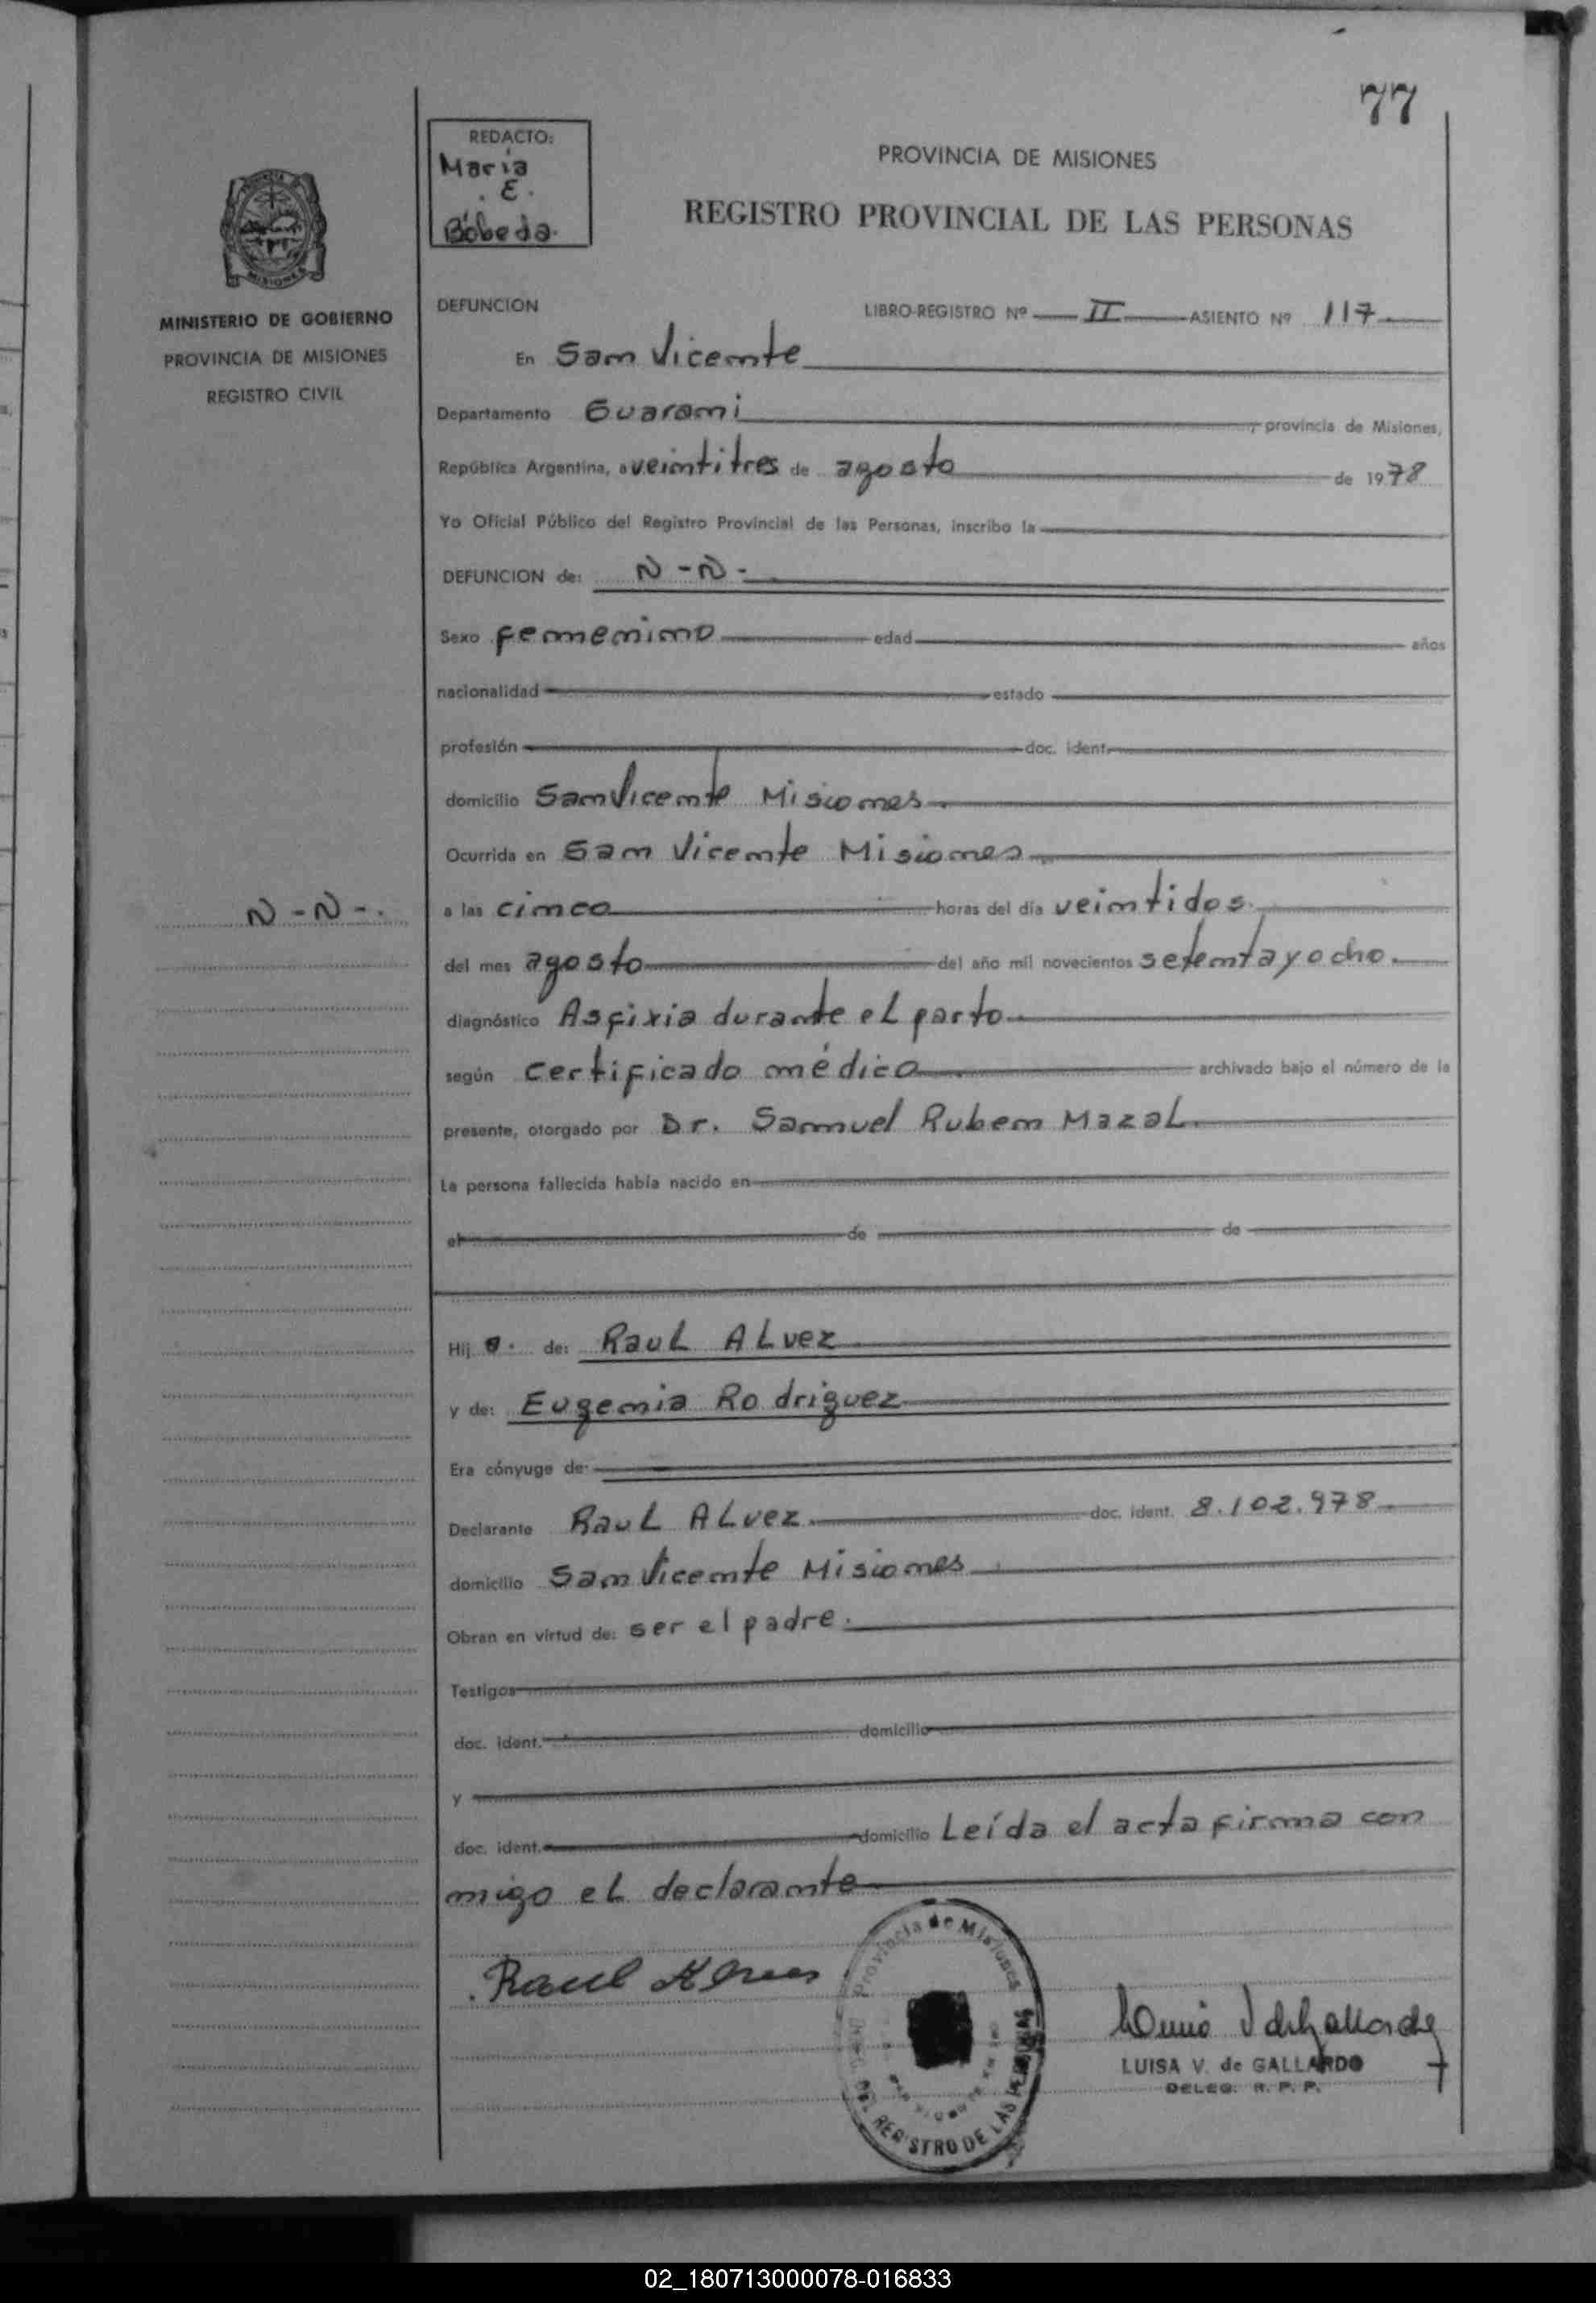 77
REDACTO:
María
E.
Bóbeda.
PROVINCIA DE MISIONES
REGISTRO PROVINCIAL DE LAS PERSONAS
MISIONES
MINISTERIO DE GOBIERNO
PROVINCIA DE MISIONES
REGISTRO CIVIL
DEFUNCION
LIBRO-REGISTRO Nº II ASIENTO Nº 117
En San Vicente
Departamento Guarani, provincia de Misiones,
República Argentina, a veintitres de agosto de 1978
Yo Oficial Público del Registro Provincial de las Personas, inscribo la
DEFUNCION de: N-N-
Sexo femenino edad años
nacionalidad estado
profesión doc. ident.
domicilio San Vicente Misiones.
Ocurrida en San Vicente Misiones
N-N-.
a las cinco horas del día veintidos
del mes agosto del año mil novecientos setenta y ocho.
diagnóstico Asfixia durante el parto
según certificado médico archivado bajo el número de la
presente, otorgado por Dr. Samuel Ruben Mazal.
La persona fallecida había nacido en
el de de
Hij a. de: Raul Alvez
y de: Eugenia Rodriguez
Era cónyuge de:
Declarante Raul Alvez doc. ident. 8.102.978
domicilio San Vicente Misiones
Obran en virtud de: ser el padre.
Testigos
doc. ident. domicilio
y
doc. ident. domicilio Leída el acta firma con
migo el declarante
Raul Alvez
Provincia de Misiones
DEL REGISTRO DE LAS PERSONAS
LUISA V. de GALLARDO
DELEG. R. P. P.
02_180713000078-016833